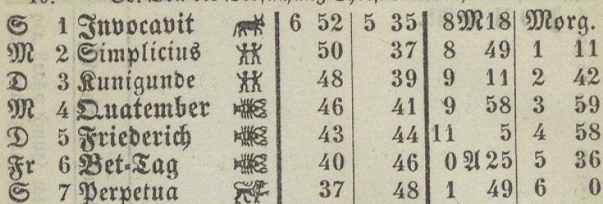 S 1 Invocavit 6 52 5 35 8M18 Morg.
M 2 Simplicius 50 37 8 49 1 11
D 3 Kunigunde 48 39 9 11 2 42
M 4 Quatember 46 41 9 58 3 59
D 5 Friederich 43 44 11 5 4 58
Fr 6 Bet-Tag 40 46 0A25 5 36
S 7 Perpetua 37 48 1 49 6 0